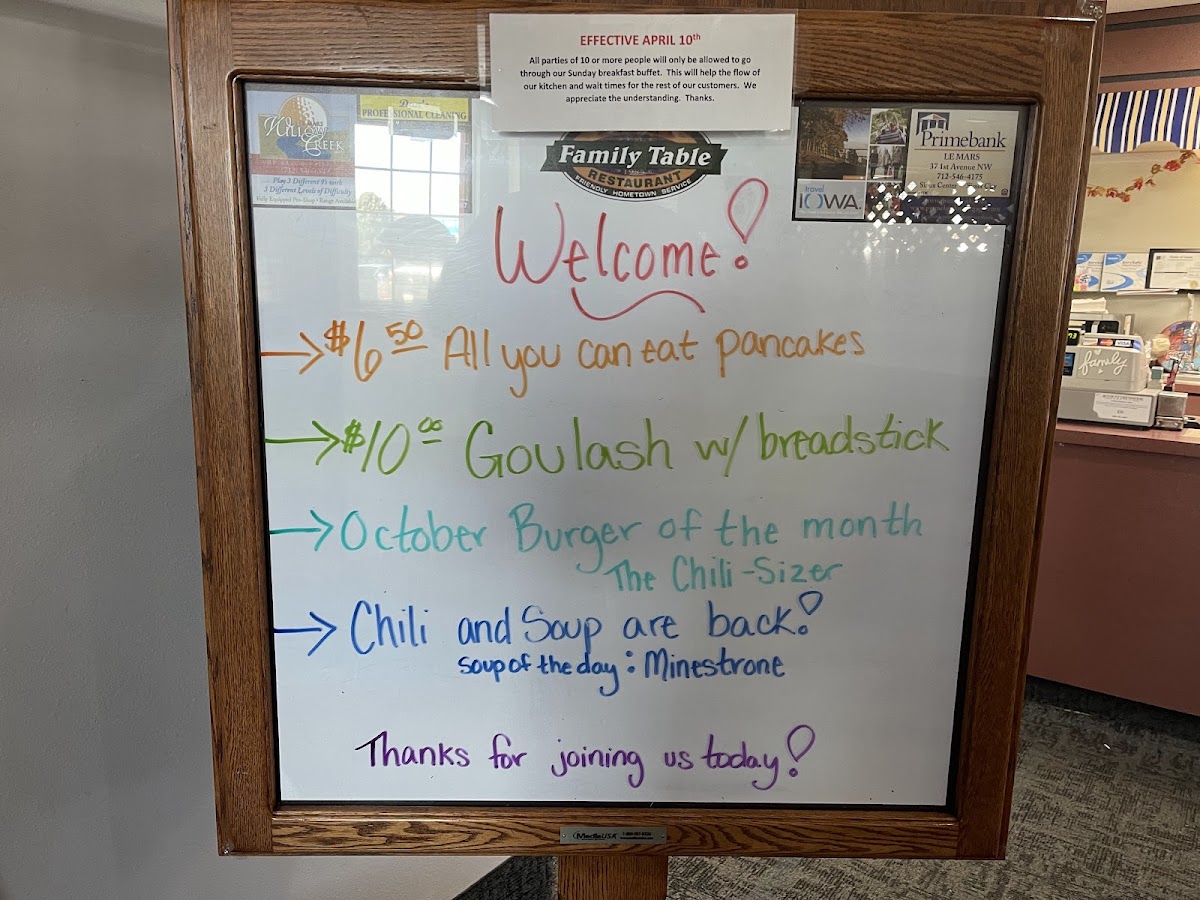 EFFECTIVE APRIL 10th
All parties of 10 or more people will only be allowed to go
through our Sunday breakfast buffet. This will help the flow of
our kitchen and wait times for the rest of our customers. We
appreciate the understanding. Thanks.
Hills
Creek
Play 3 Different 9's
3 Different Levels of Difficulty
Fully Equipped Pro-Shop • Range Available
PROFESSIONAL CLEANING
Family Table
RESTAURANT
FRIENDLY HOMETOWN SERVICE
travel
IOWA
Primebank
LE MARS
37 1st Avenue NW
712-546-4175
Sioux Center
Welcome!
$6 50 All you can eat pancakes
$10 00 Goulash w/ breadstick
October Burger of the month
The Chili-Sizer
Chili and Soup are back!
soup of the day: Minestrone
Thanks for joining us today!
MediaUSA
VISA
family